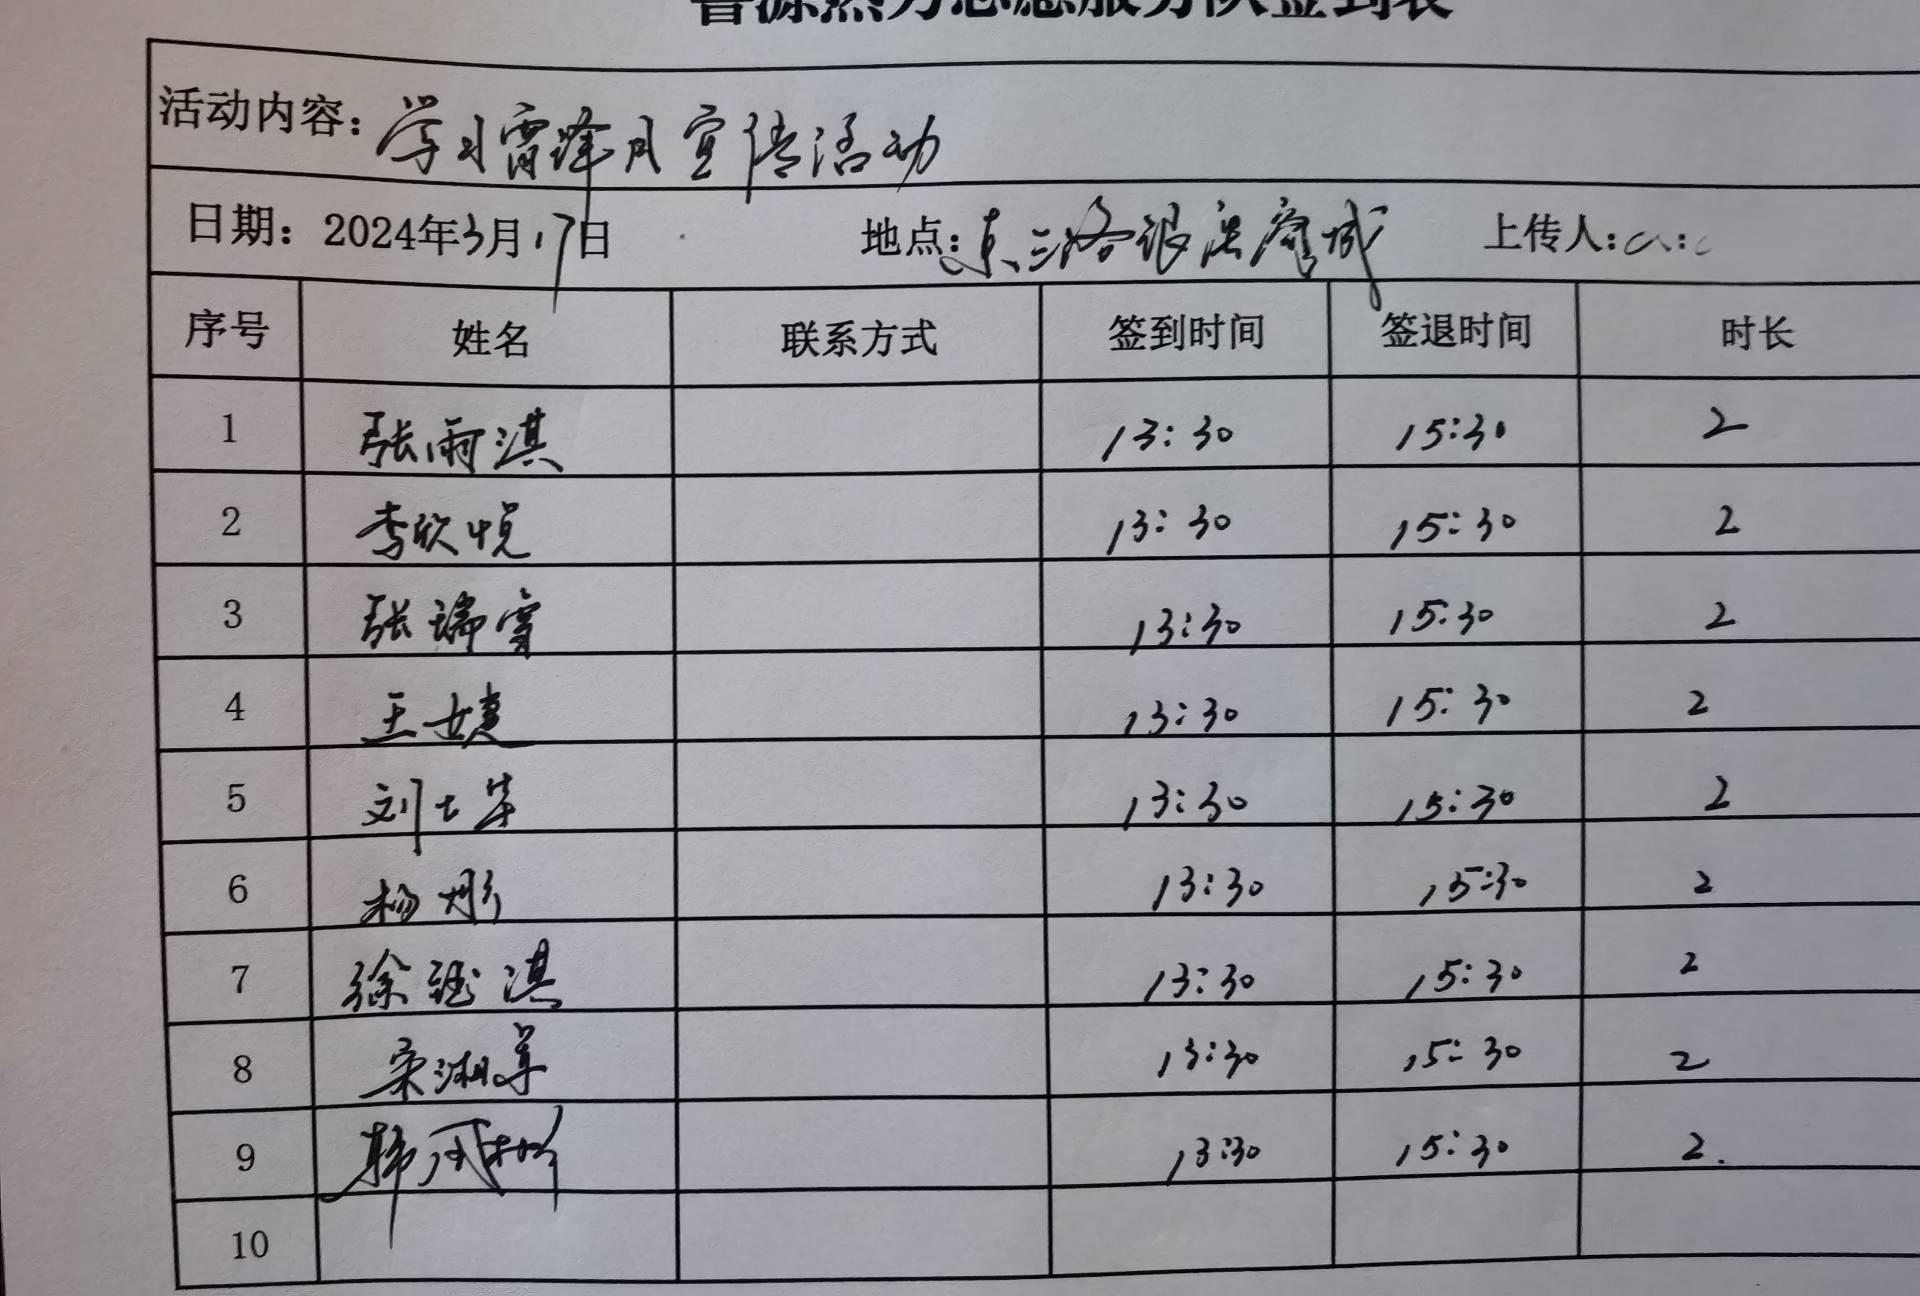 普源热力志愿服务队签到表
活动内容：学习雷锋月宣传活动
日期：2024年3月17日 地点：东三路银座商城 上传人：
序号 姓名 联系方式 签到时间 签退时间 时长
1 张雨淇 13:30 15:30 2
2 李欣悦 13:30 15:30 2
3 张瑞雪 13:30 15:30 2
4 王婕 13:30 15:30 2
5 刘士华 13:30 15:30 2
6 杨彤 13:30 15:30 2
7 徐钰淇 13:30 15:30 2
8 宋湘军 13:30 15:30 2
9 韩 13:30 15:30 2.
10